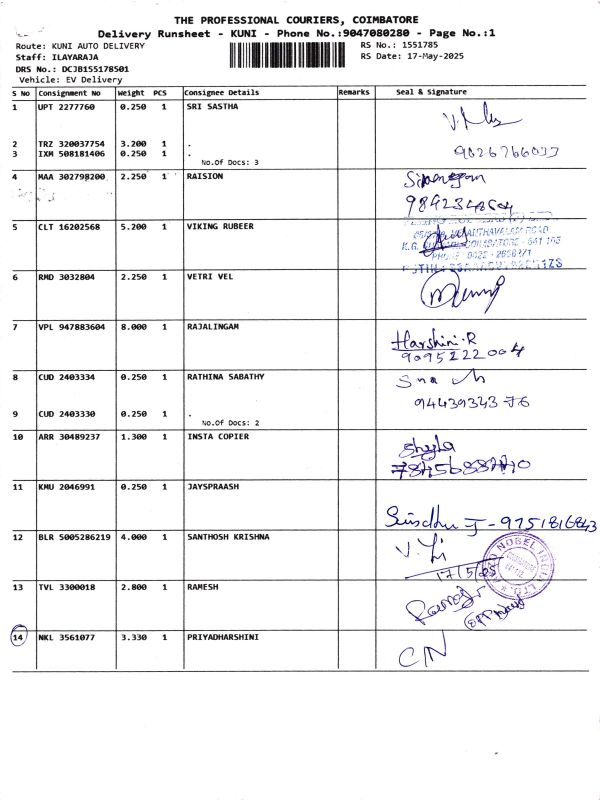 THE PROFESSIONAL COURIERS, COIMBATORE
Delivery Runsheet - KUNI - Phone No.:9047080280 - Page No.:1
Route: KUNI AUTO DELIVERY RS No.: 1551785
Staff: ILAYARAJA RS Date: 17-May-2025
DRS No.: DCJB155178501
Vehicle: EV Delivery
S No Consignment No Weight PCS Consignee Details Remarks Seal & Signature
1 UPT 2277760 0.250 1 SRI SASTHA
2 TRZ 320037754 3.200 1 .
3 IXM 508181406 0.250 1 .
No.Of Docs: 3
4 MAA 302798200 2.250 1 RAISION
9842348504
5 CLT 16202568 5.200 1 VIKING RUBEER
6 RMD 3032804 2.250 1 VETRI VEL
7 VPL 947883604 8.000 1 RAJALINGAM
Harshini.R
9095222004
8 CUD 2403334 0.250 1 RATHINA SABATHY
9 CUD 2403330 0.250 1 .
No.Of Docs: 2
10 ARR 30489237 1.300 1 INSTA COPIER
11 KMU 2046991 0.250 1 JAYSPRAASH
9751816843
12 BLR 5005286219 4.000 1 SANTHOSH KRISHNA
17/5/25
NOBEL INDIA LTD.
13 TVL 3300018 2.800 1 RAMESH
14 NKL 3561077 3.330 1 PRIYADHARSHINI
CN